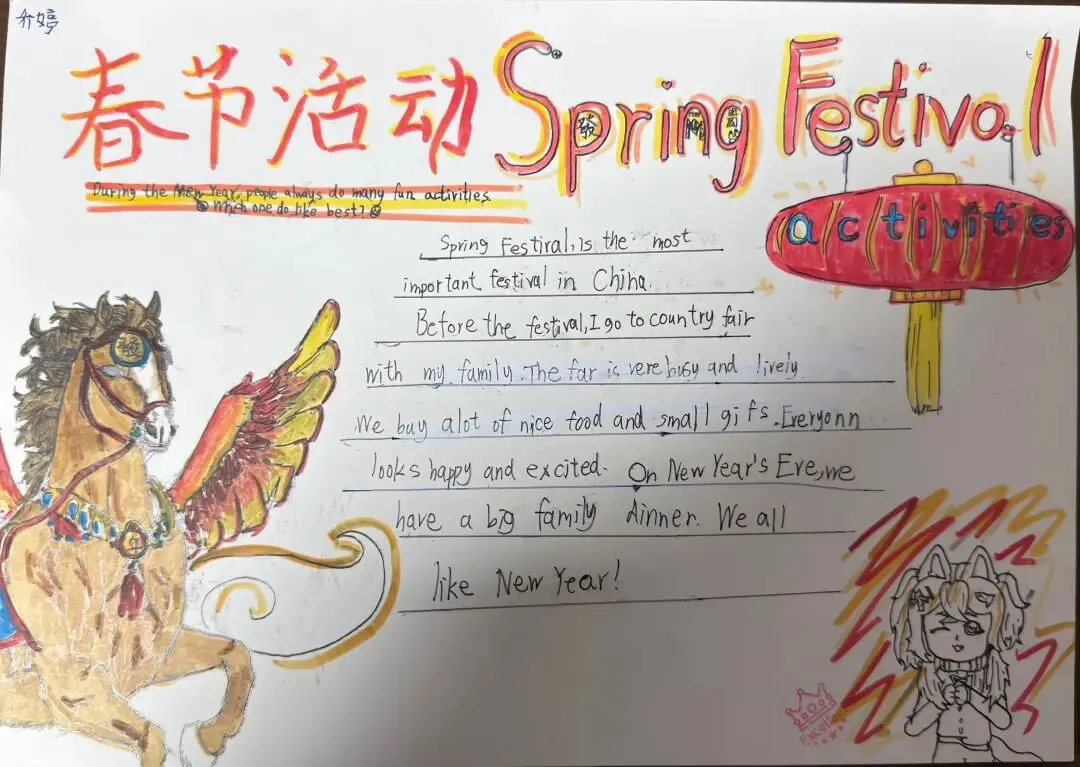 婷
春节活动 Spring Festival
activities
During the New Year, people always do many fun activities.
Which one do like best?
Spring Festiral, is the most
important festival in China.
Before the festival, I go to country fair
with my family. The far is vere busy and lively
We buy alot of nice food and small gifs. Everyonn
looks happy and excited. On New Year's Eve, we
have a big family dinner. We all
like New Year!